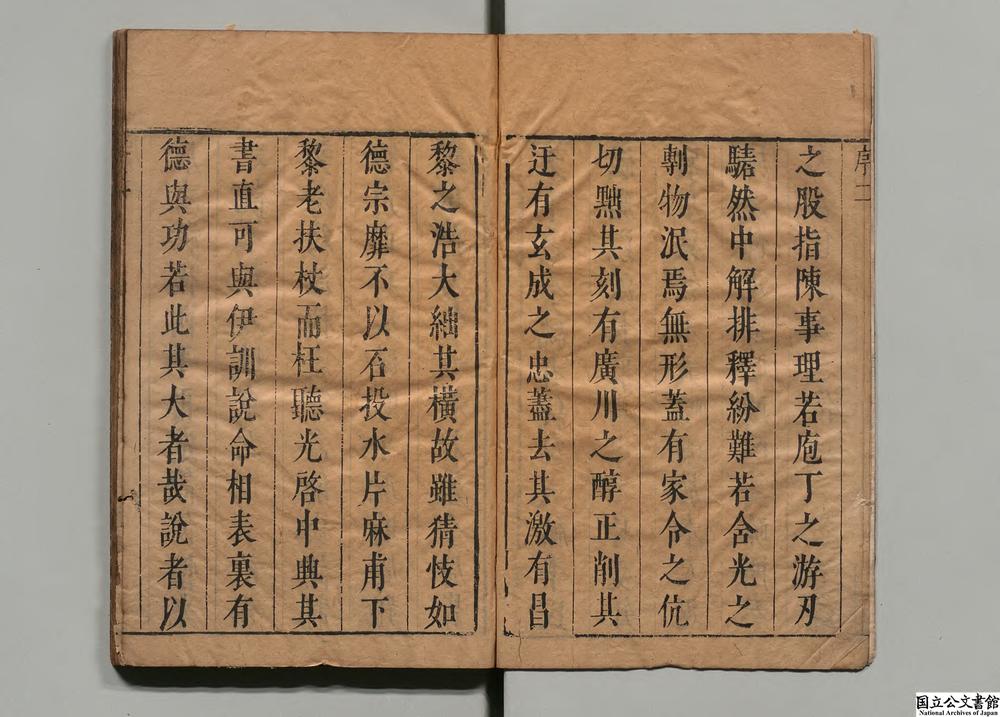 之股指陳事理若庖丁之游刃
騞然中解排釋紛難若含光之
剸物泯焉無形蓋有家令之伉
切黜其刻有廣川之醇正削其
迂有玄成之忠藎去其激有昌
黎之浩大絀其橫故雖猜忮如
德宗靡不以石投水片麻甫下
黎老扶杖而枉聽光啓中典其
書直可與伊訓說命相表裏有
德與功若此其大者哉說者以
国立公文書館
National Archives of Japan